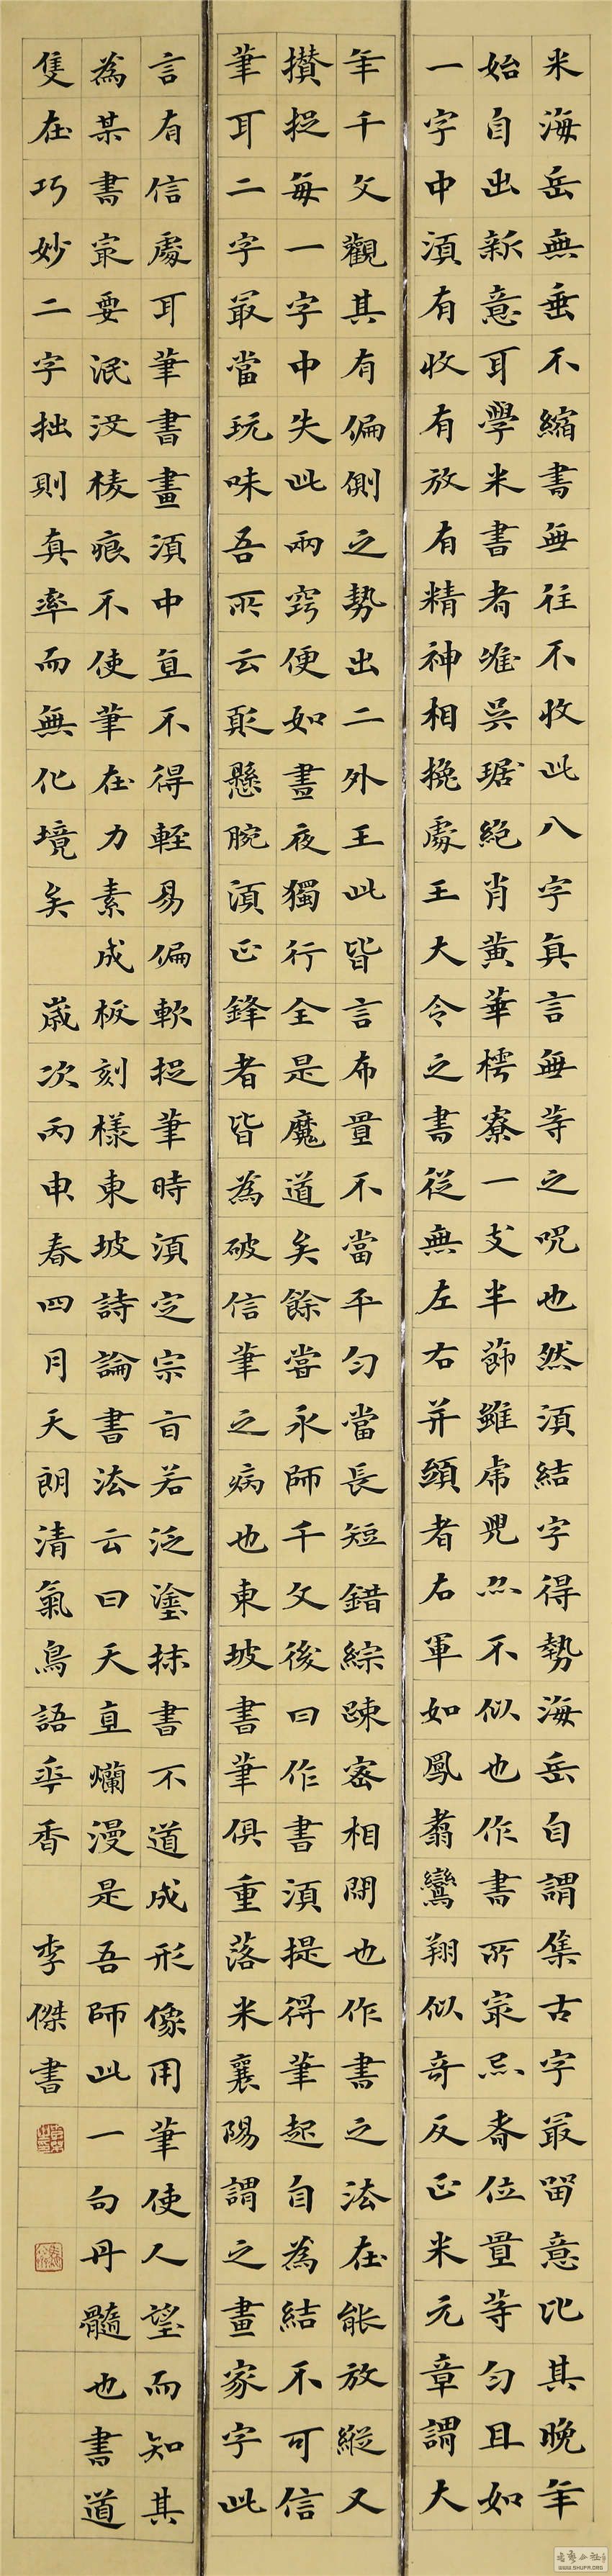 米海岳無垂不縮書無往不收此八字真言無等之呪也然須結字得勢海岳自謂集古字最留意比其晚年
始自出新意耳學米書者惟吳琚絕肖黃華樗寮一支半節雖虎兕亦不似也作書所最忌者位置等勻且如
一字中須有收有放有精神相挽處王大令之書從無左右并頭者右軍如鳳翥鸞翔似奇反正米元章謂大
年千文觀其有偏側之勢出二外王此皆言布置不當平勻當長短錯綜疎密相間也作書之法在能放縱又
攢捉每一字中失此兩竅便如晝夜獨行全是魔道矣餘嘗永師千文後曰作書須提得筆起自為結不可信
筆耳二字最當玩味吾所云懸腕須正鋒者皆為破信筆之病也東坡書筆俱重落米襄陽謂之畫家字此
言有信處耳筆書畫須中直不得輕易偏軟捉筆時須定宗旨若泛塗抹書不道成形像用筆使人望而知其
為某書最要泯沒棱痕不使筆在力素成板刻樣東坡詩論書法云曰天直爛漫是吾師此一句丹髓也書道
隻在巧妙二字拙則真率而無化境矣 歲次丙申春四月天朗清氣鳥語華香 李傑書